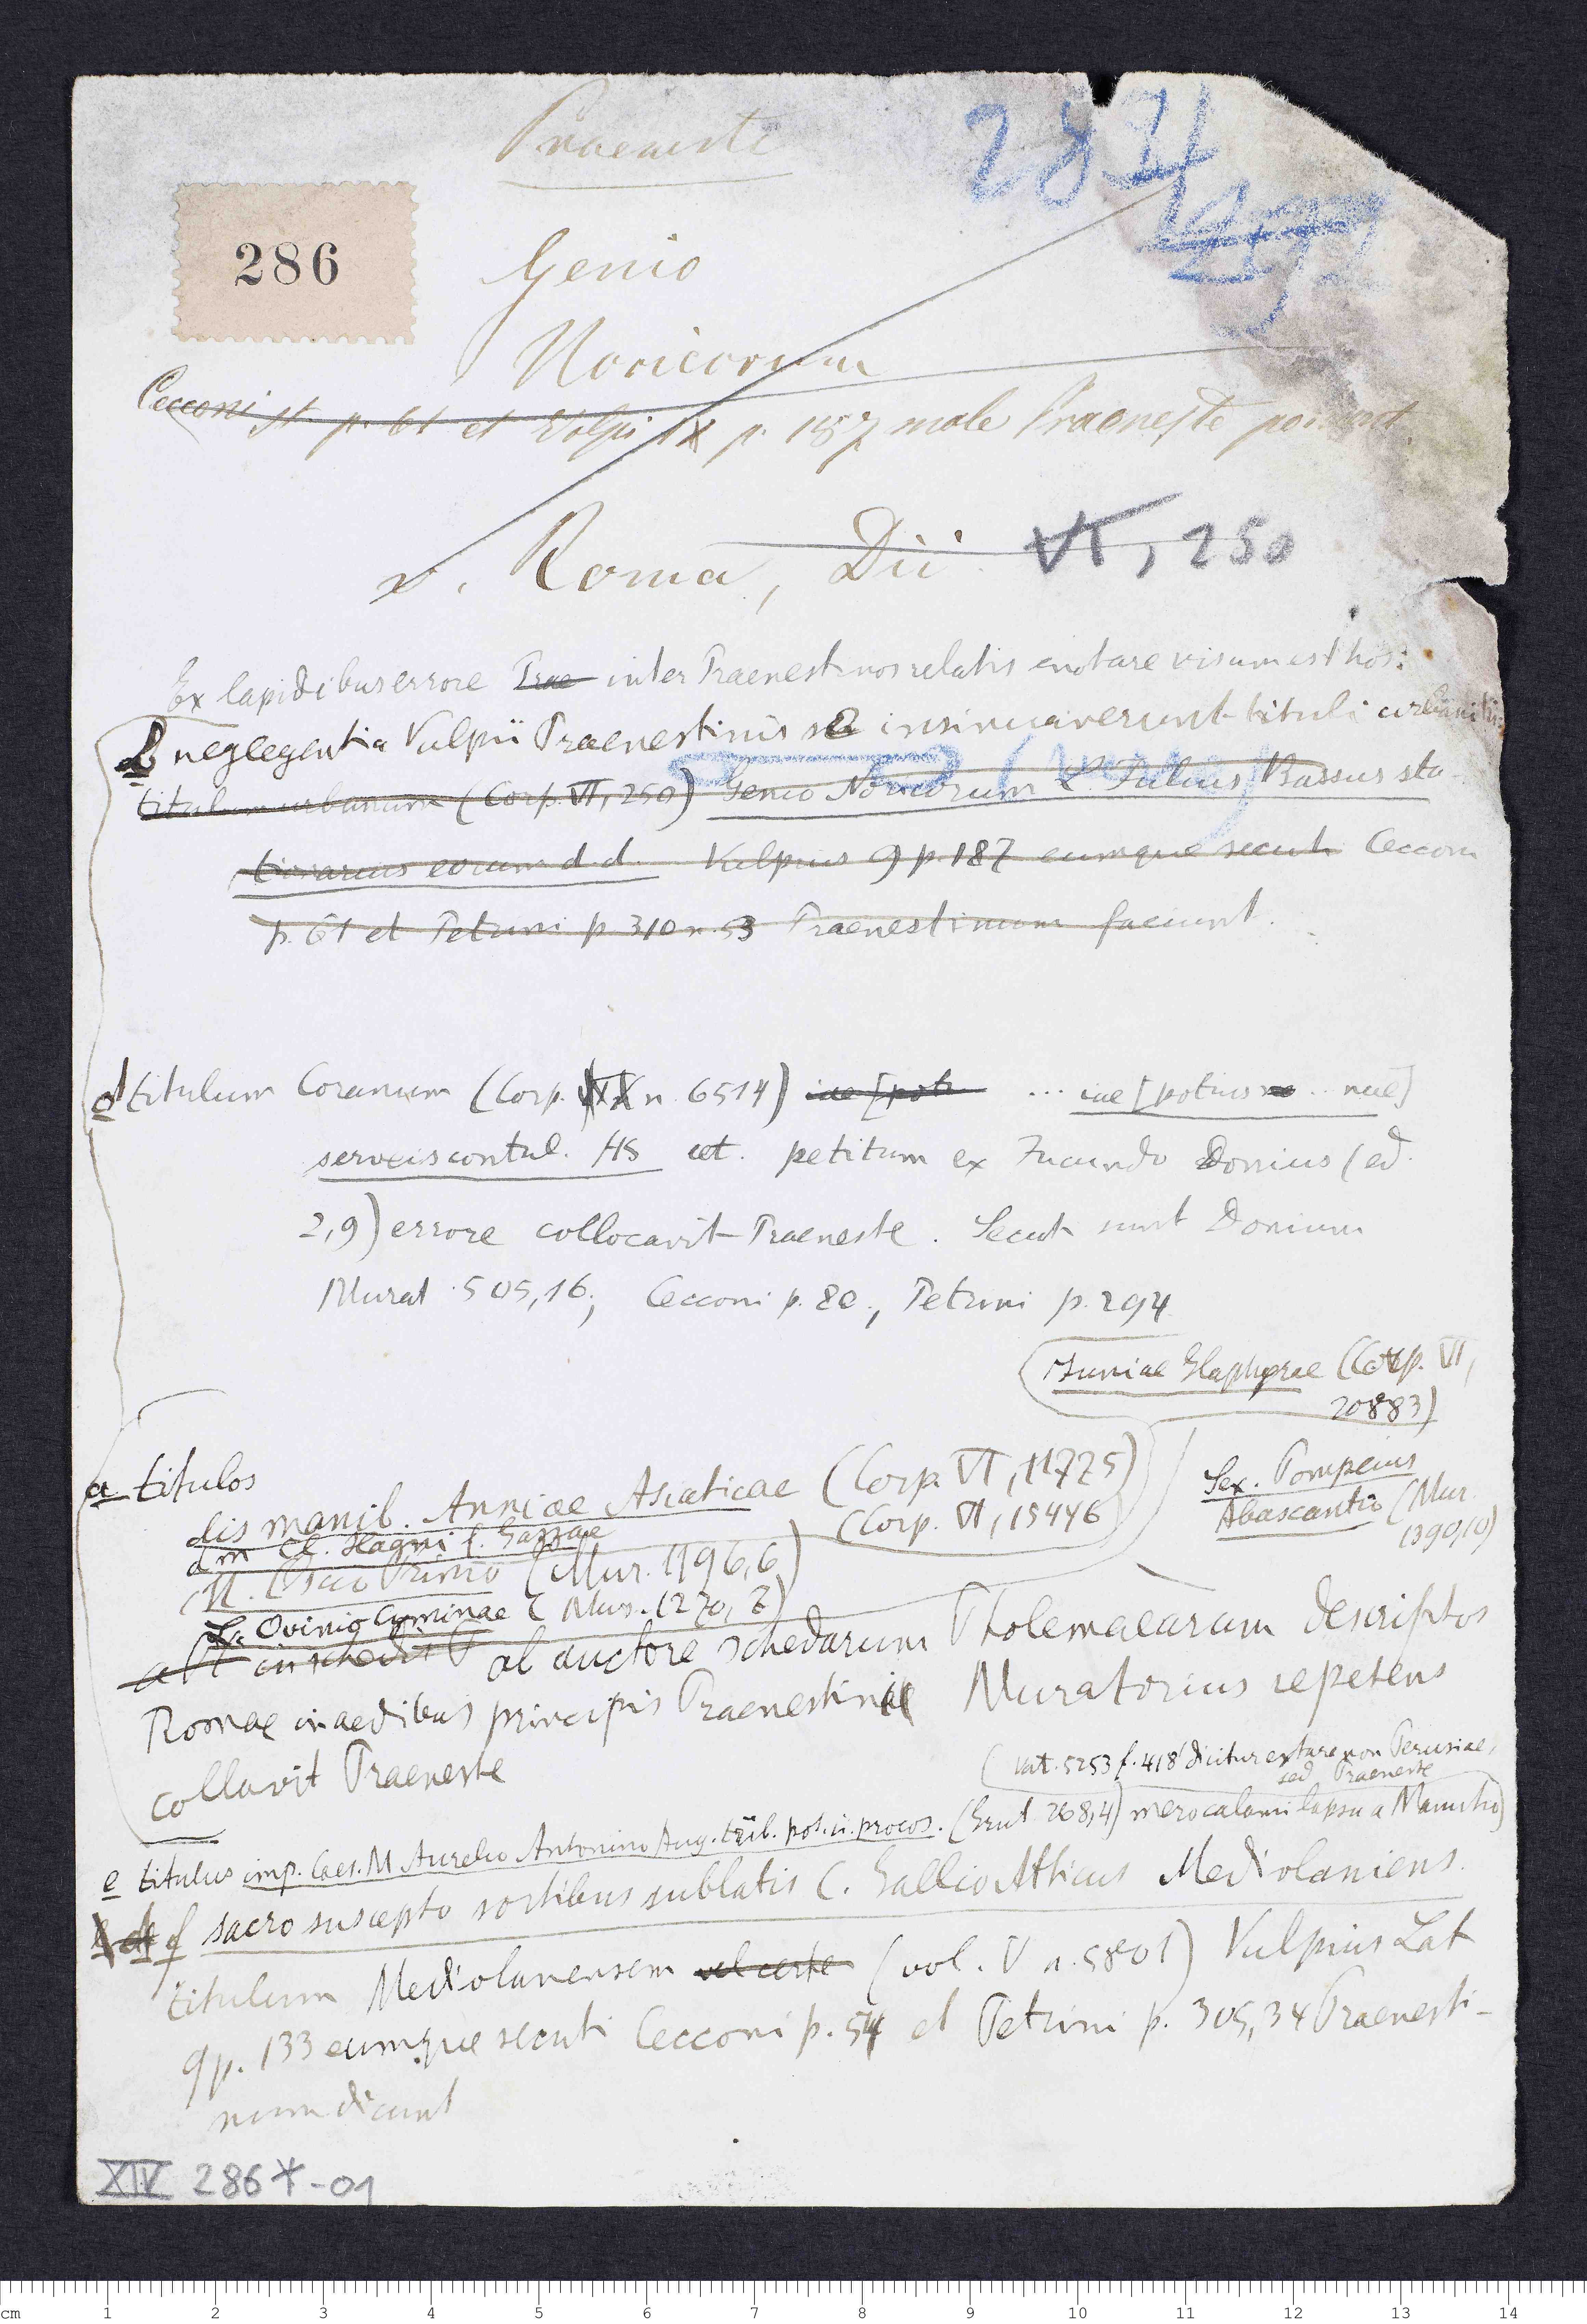 Praeneste
286
Genio
Noricorum
Cecconi st. p. 61 et Volpi IX p. 187 male Praeneste ponunt.
v. Roma, Dii VI, 250
Ex lapidibus errore Prae inter Praenestinos relatis enotare visum est hos:
b neglegentia Vulpii Praenestinis se insinuaverunt tituli urbani
titulum urbanum (Corp. VI, 250) Genio Noricorum L. Iulius Bassus sta-
tionarius eorum d. d. Vulpius 9 p. 187 eumque secuti Cecconi
p. 61 et Petrini p 310 n. 53 Praenestinum faciunt.
d titulum Coranum (Corp. X n. 6514) iae [poti ... iae [potius ... nae]
serveis contul. HS cet. petitum ex Iucundo Donius (ed.
2,9) errore collocavit Praeneste. Secuti sunt Donium
Murat. 505,16; Cecconi p. 80, Petrini p. 294
Iuniae Glaphyrae (Corp. VI,
20883)
a titulos
dis manib. Anniae Asiaticae (Corp. VI, 11725)
d m Cl. Hagni f. Gazzae (Corp. VI, 15446)
Sex. Pompeius
Abascantio (Mur.
1390,10)
(Mur. 1196,6)
Ovinio (Mur. 1270, 7)
in schedis ab auctore schedarum Ptolemaearum descriptos
Romae in aedibus principis Praenestinae Muratorius repetens
collavit Praeneste
(Vat. 5253 f. 418 dicitur extare non Perusiae,
sed Praeneste
e titulus imp. Caes. M Aurelio Antonino Aug. trib. pot. procos. (Grut 268,4) mero calami lapsu a Manutio)
f sacro suscepto sortibus sublatis C. Gallio Atticus Mediolaniens.
titulum Mediolanensem vel certe (vol. V n. 5801) Vulpius Lat
9 p. 133 eumque secuti Cecconi p. 54 et Petrini p. 305,34 Praenesti-
num dicunt
XIV 286*-01
cm 1 2 3 4 5 6 7 8 9 10 11 12 13 14